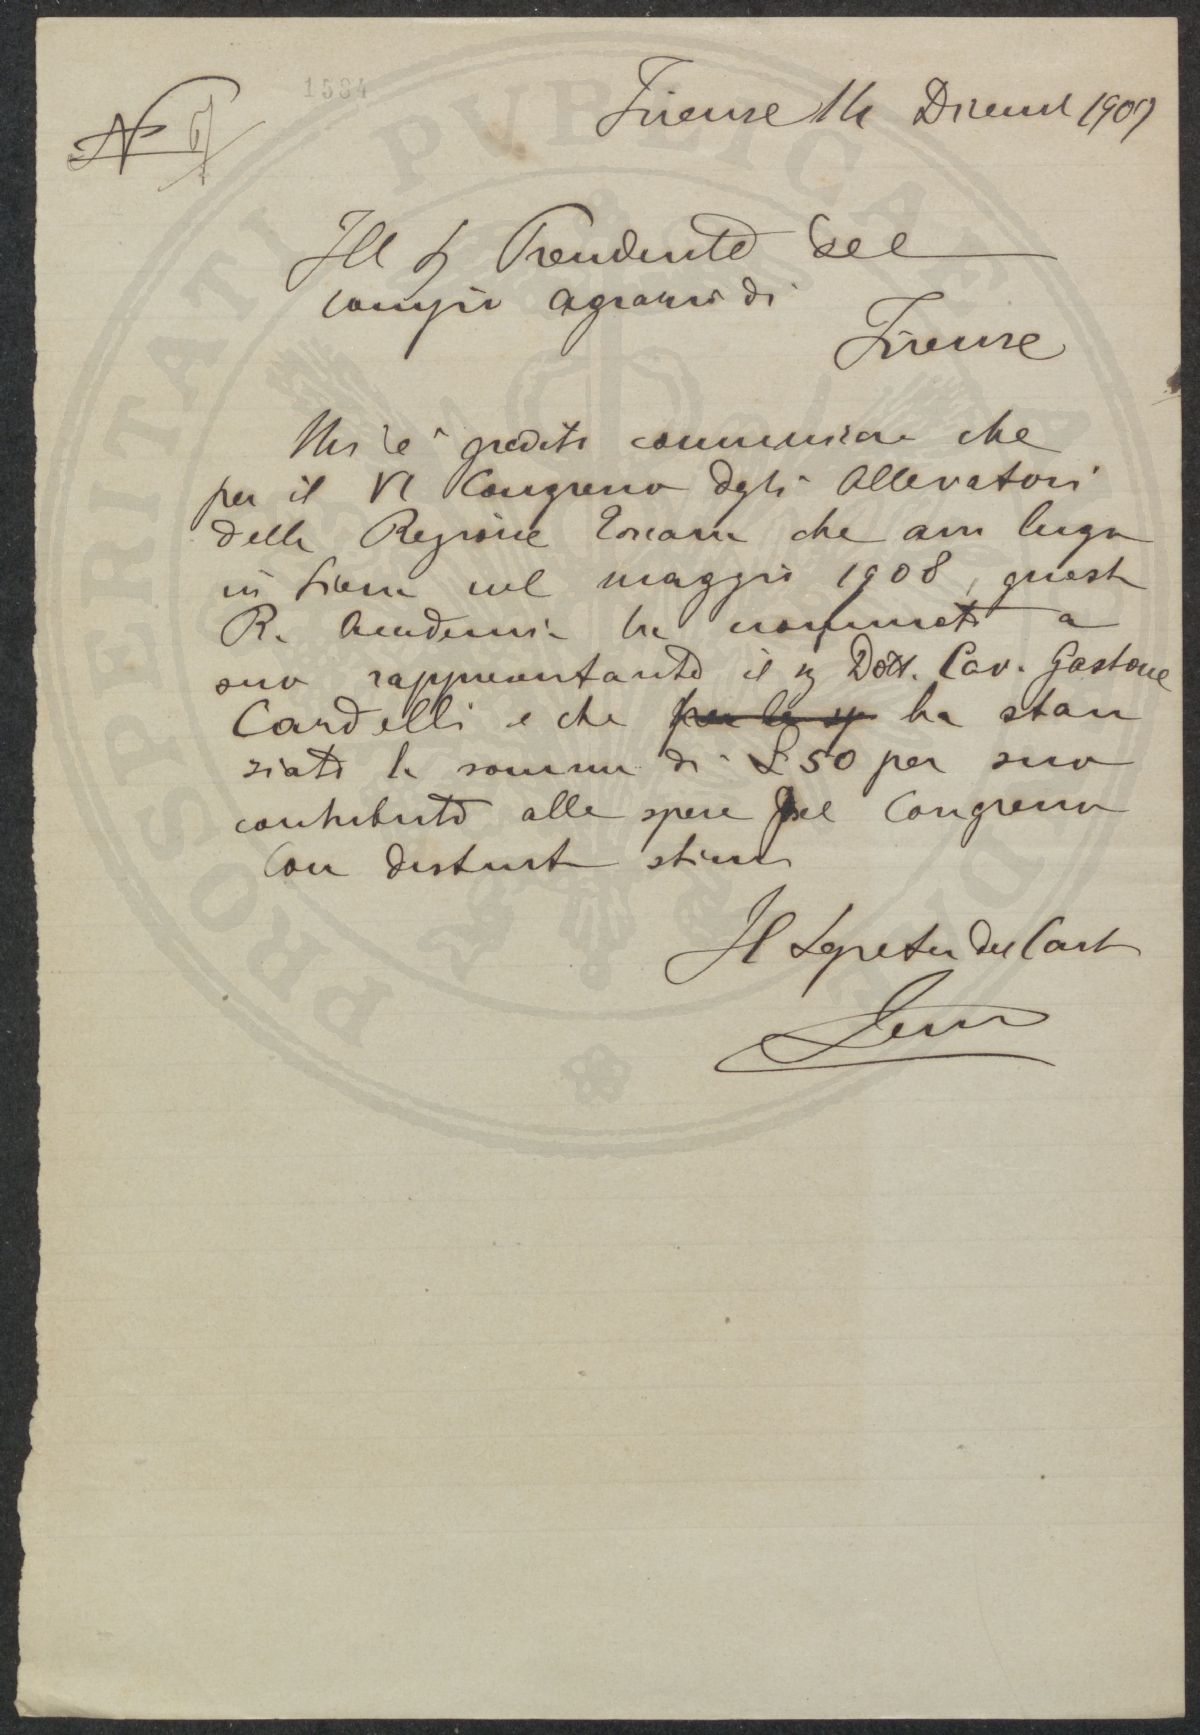 1584
No
Firenze 14 Dicemb 1907
Ill Sg Presidente del
Comizio Agrario di
Firenze
Mi è gradito comunicare che
per il VI Congresso degli Allevatori
della Regione Toscana che avrà luogo
in Siena nel maggio 1908, questa
R. Accademia ha nominato a
suo rappresentante il sg Dott. Cav. Gastone
Cardelli e che per le sp ha stan
ziato la somma di £ 50 per suo
contributo alle spese del Congresso
Con distinta stima
Il Segretario del Cart
PROSPERITATI PVBLICAE